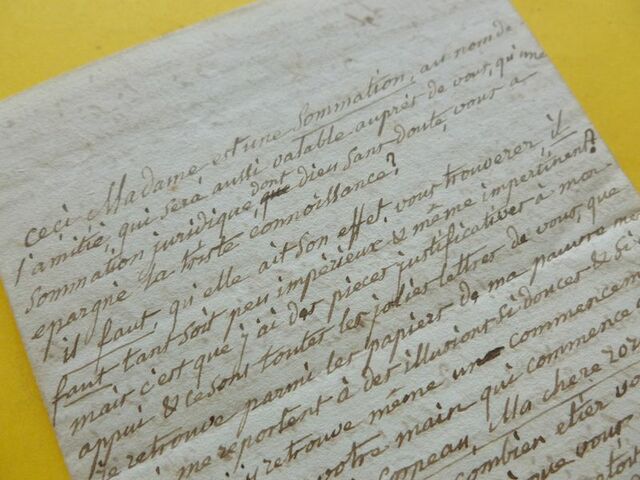 ceci Madame est une sommation, au nom de
l'amitié, qui sera aussi valable auprès de vous, qu'une
sommation juridique, dont dieu sans doute, vous a
epargné la triste connoissance?
il faut, qu'elle ait son effet, vous trouverez, il
faut tant soit peu impérieux & même impertinent?
mais c'est que j'ai des pieces justificatives à mon
appui & ce sont toutes les jolies lettres de vous, que
je retrouve parmi les papiers de ma pauvre m
me reportent à des illusions si douces & si
j'y retrouve même un commencem
votre main qui commence
Ma chere
combien
que vous